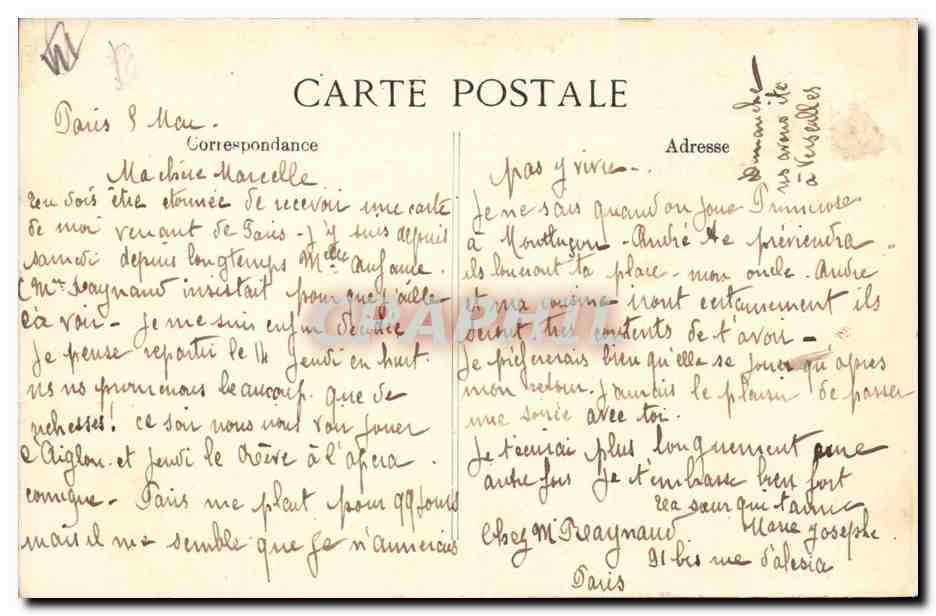 CARTE POSTALE
Paris 8 Mai.
Correspondance
Ma chère Marcelle
Tu dois être étonnée de recevoir une carte
de moi venant de Paris - J'y suis depuis
samedi depuis longtemps Melle
(Mme Raynaud insistait pour que j'aille
la voir - Je me suis enfin décidée
Je pense repartir le 14 Jeudi en huit
ns ns promenons beaucoup. que de
richesses! ce soir nous irons voir jouer
l'Aiglon. et Jeudi le Rêve à l'opéra
comique - Paris me plait pour qq jours
mais il me semble que je n'aimerais
Adresse
Dimanche
ns avons été
à Versailles
pas y vivre -.
Je ne sais quand on joue Primerose
à Montluçon - André te préviendra -
ils loueront ta place - mon oncle. André
et ma cousine iront certainement ils
seront très contents de t'avoir -
Je préfèrerais bien qu'elle se joue qu'après
mon retour. J'aurais le plaisir de passer
une soirée avec toi.
Je t'écrirai plus longuement une
autre fois Je t'embrasse bien fort
Ta sœur qui t'aime
Marie Josephe
Chez Mr Raynaud
91 bis rue d'Alésia
Paris
CPAPHIL